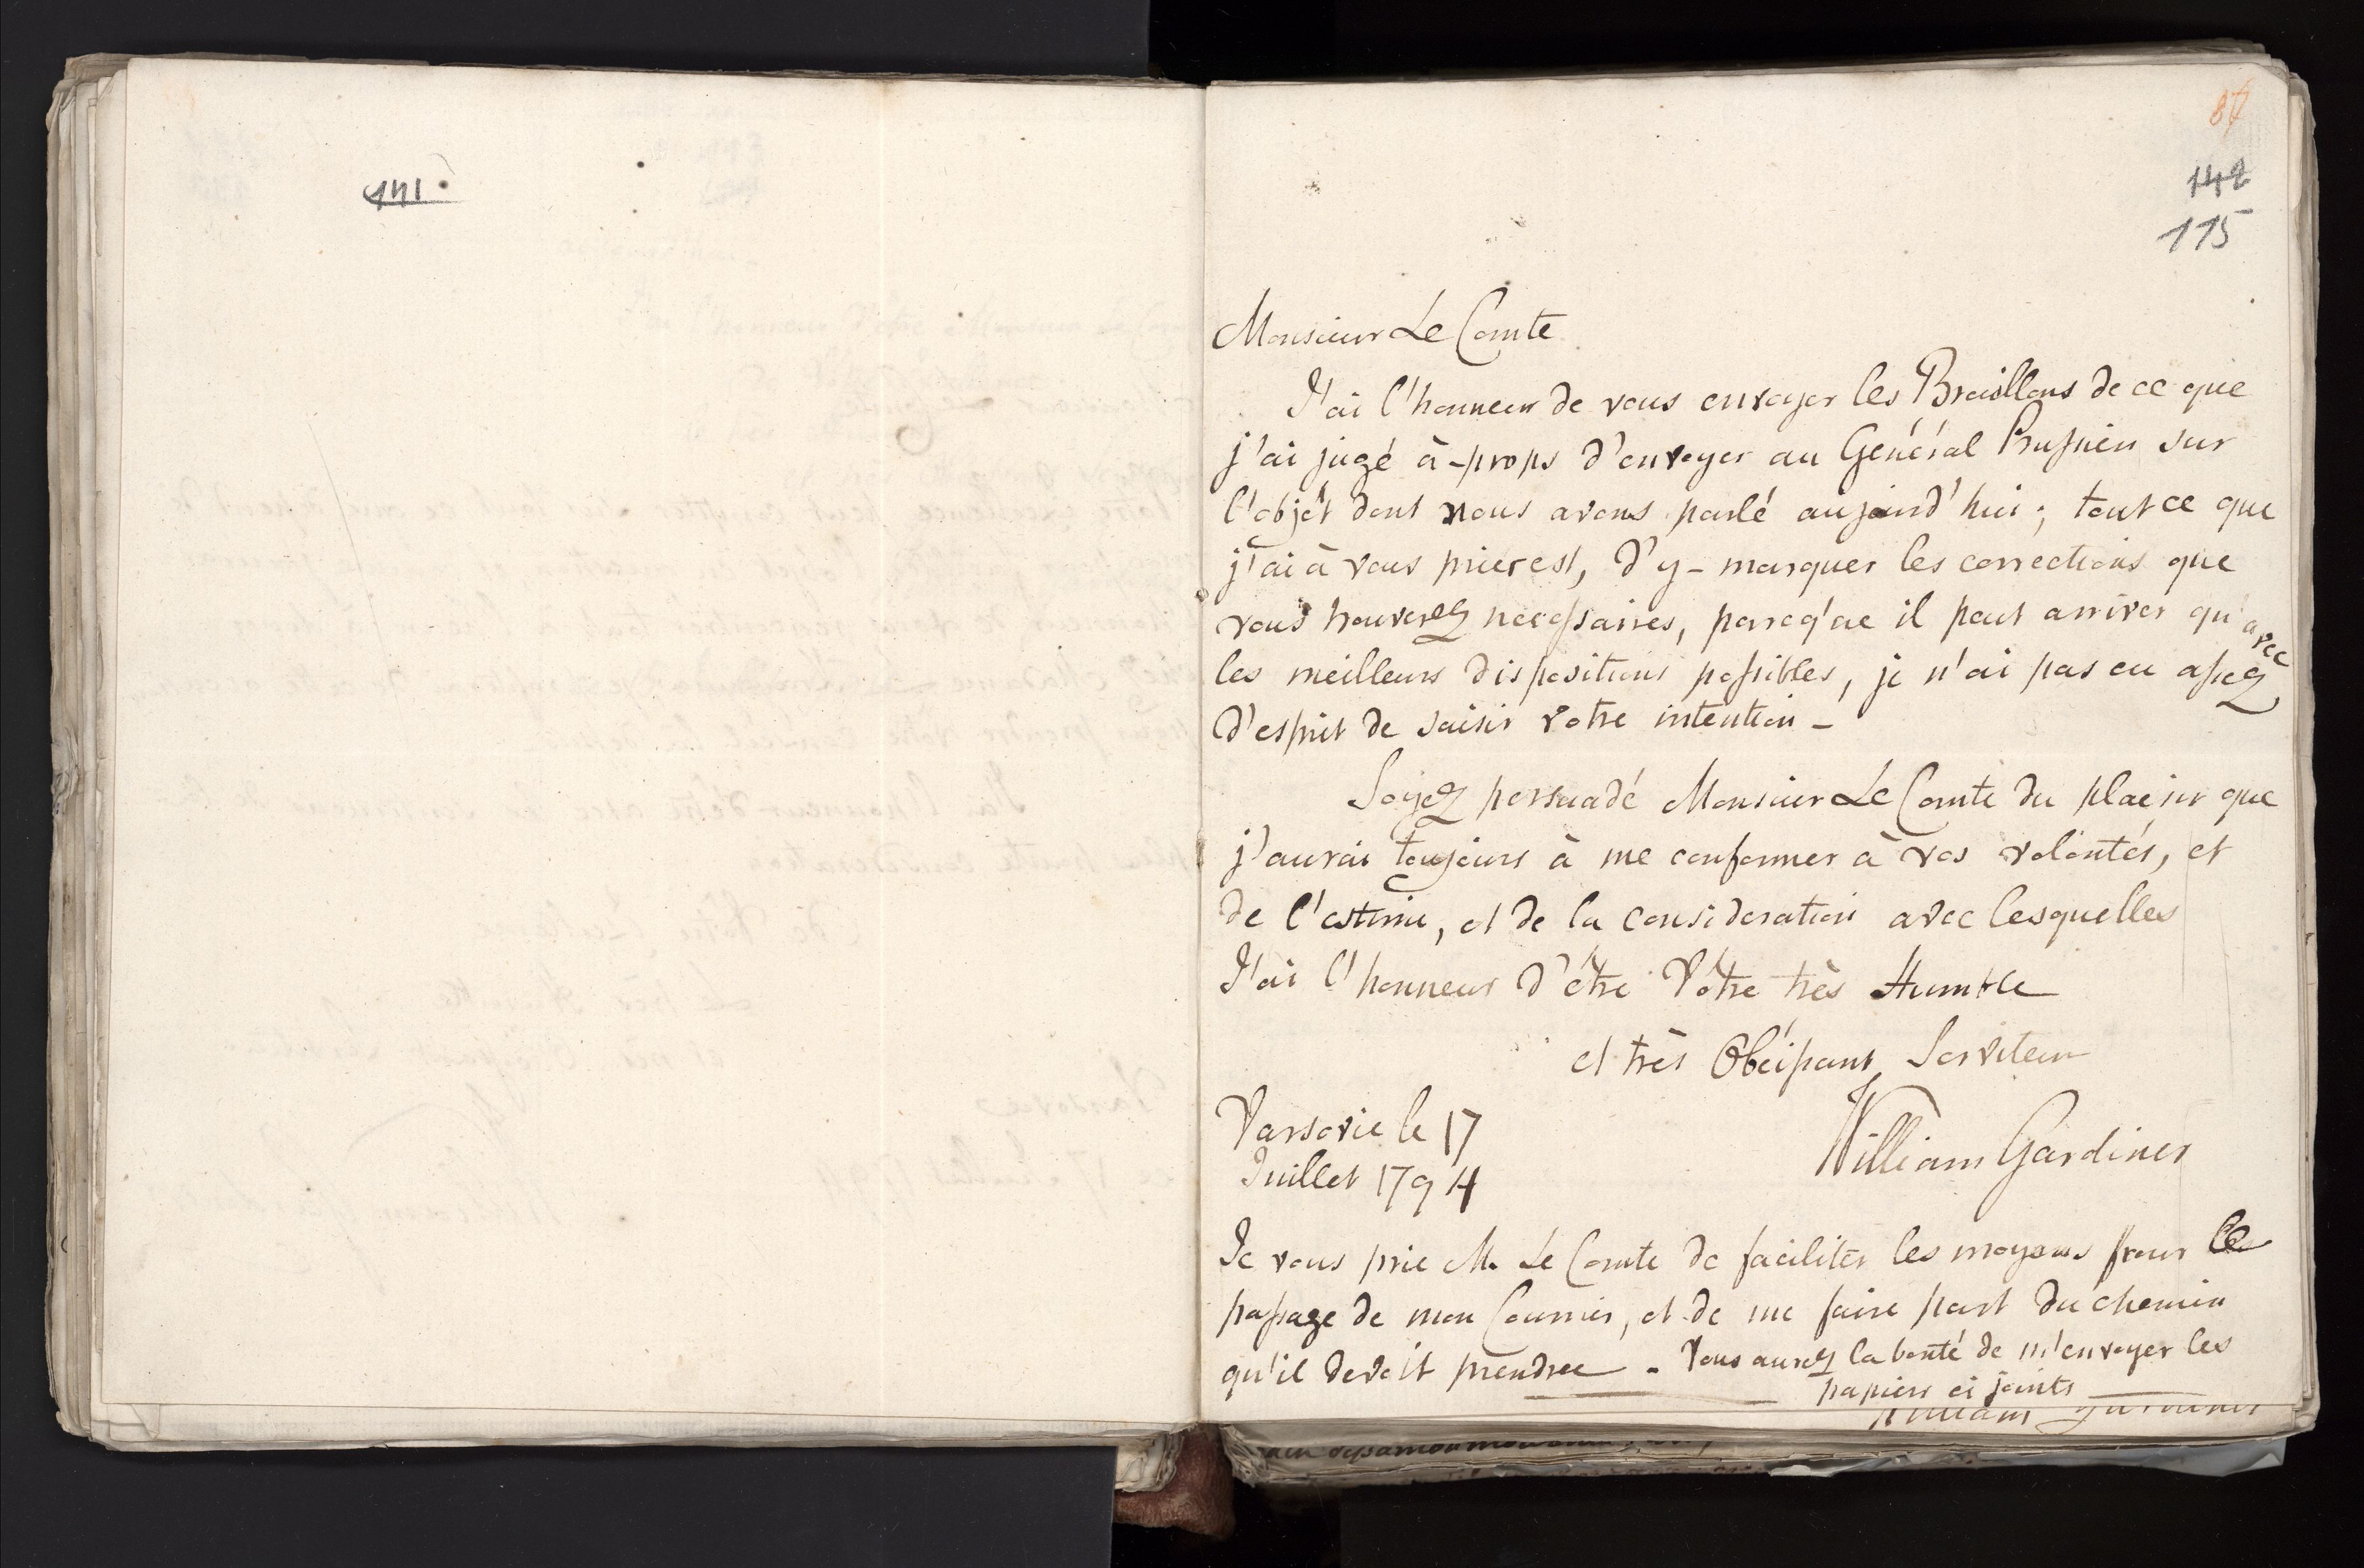 141.
87
142
115
Monsieur Le Comte
J'ai l'honneur de vous envoyer les Broüillons de ce que
j'ai jugé à-props d'envoyer au Général Prussien sur
l'objèt dont nous avons parlé aujourd'hui; tout ce que
j'ai à vous prier est, d'y-marquer les corrections que
vous trouverez necessaires, parceq'ue il peut arriver qu'avec
les meilleurs dispositions possibles, je n'ai pas eu assez
d'esprit de saisir votre intention-
Soyez persuadé Monsieur Le Comte du plaisir que
j'aurai toujours à me conformer à vos volontés, et
de l'estime, et de la consideration avec lesquelles
J'ai l'honneur d'étre Vôtre très Humble
et très Obéissant Serviteur
Varsovie le 17
Juillet 1794
William Gardiner
Je vous prie M. Le Comte de faciliter les moyens pour le
passage de mon Courrier, et de me faire part du chemin
qu'il devoit prendree - Vous aurez la bonté de m'envoyer les
papiers ci joints
William Gardiner